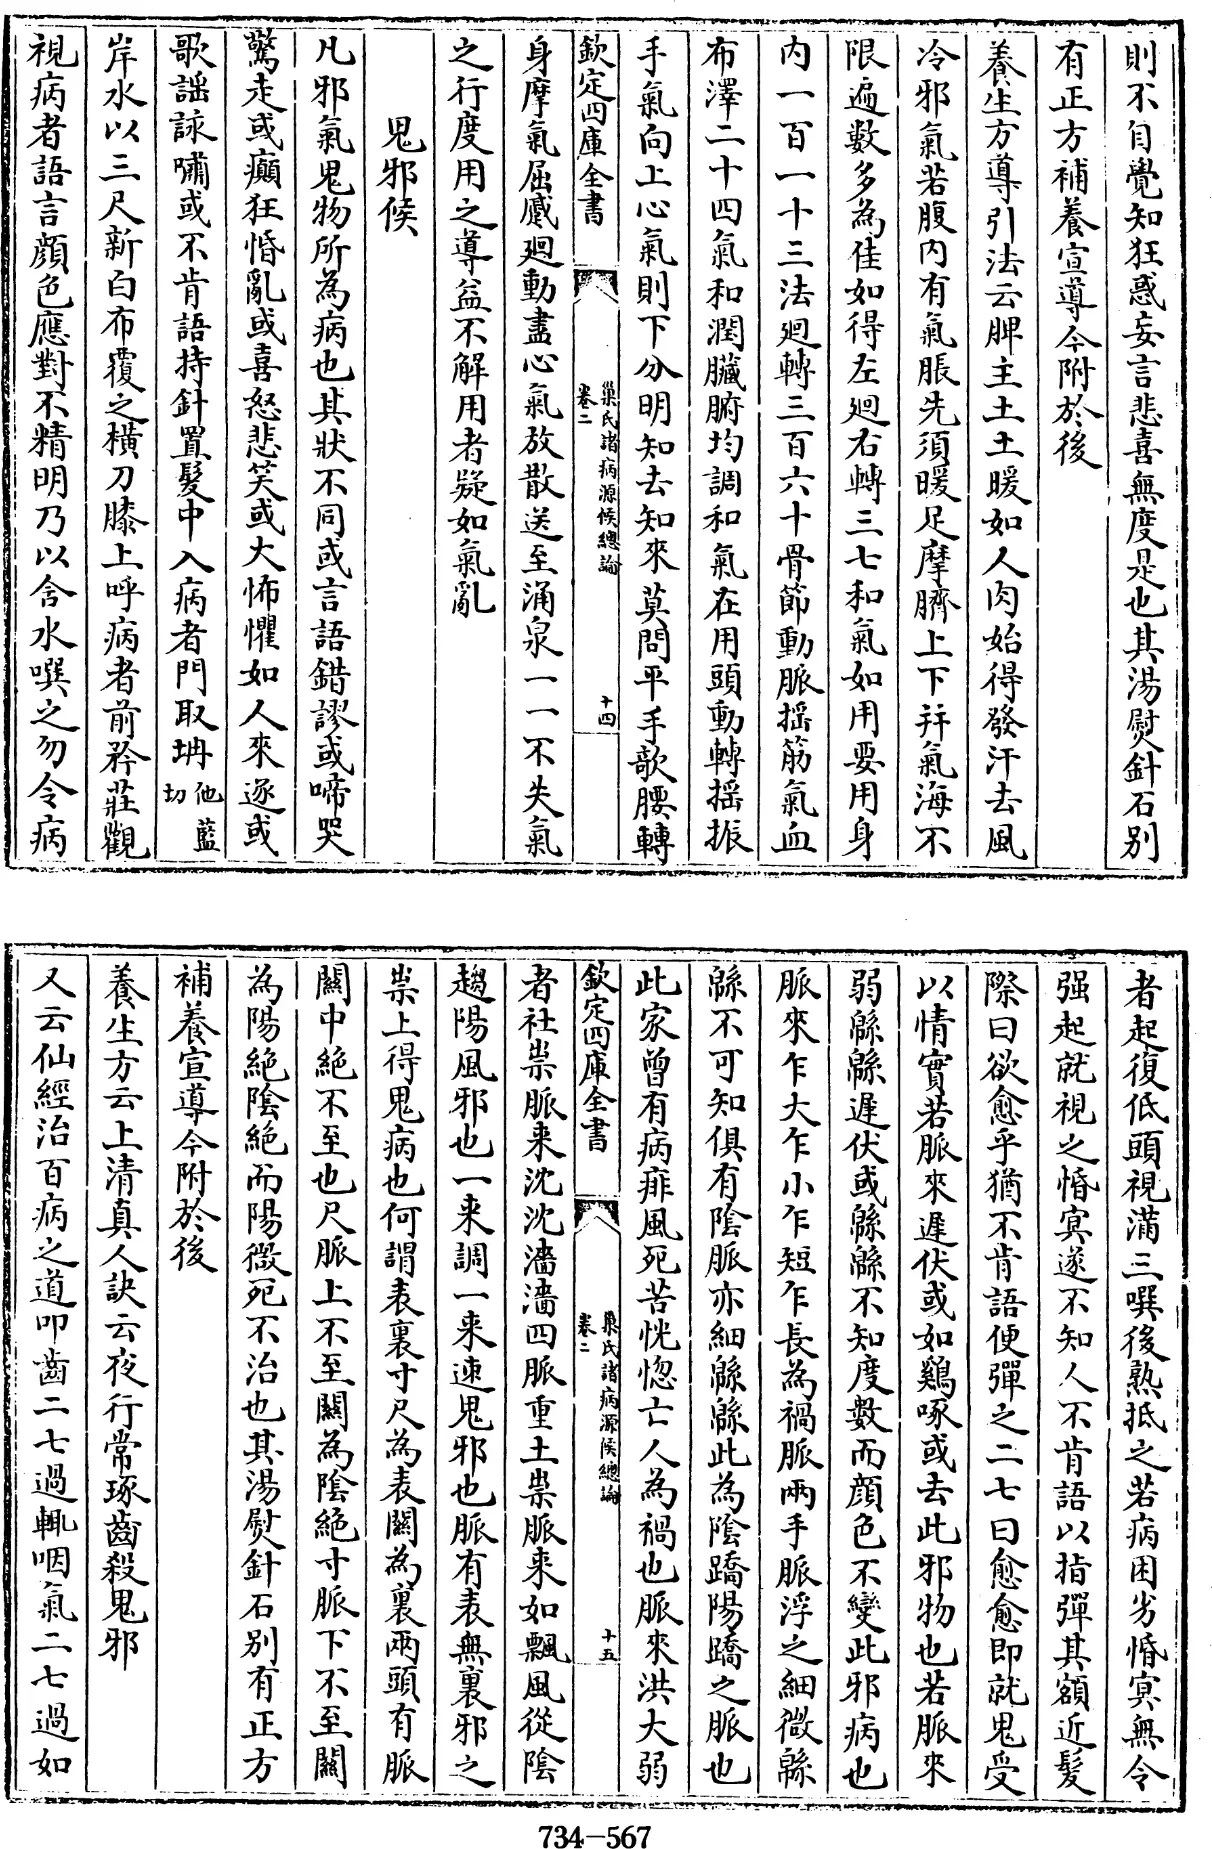 則不自覺知狂惑妄言悲喜無度是也其湯熨針石别
有正方補養宣導今附於後
養生方導引法云脾主土土暖如人肉始得發汗去風
冷邪氣若腹内有氣脹先須暖足摩臍上下并氣海不
限遍數多為佳如得左廻右轉三七和氣如用要用身
内一百一十三法廻轉三百六十骨節動脈揺筋氣血
布澤二十四氣和潤臟腑均調和氣在用頭動轉揺振
手氣向上心氣則下分明知去知來莫問平手欹腰轉
欽定四庫全書
巢氏諸病源候總論
卷二
十四
身摩氣屈蹙廻動盡心氣放散送至涌泉一一不失氣
之行度用之導益不解用者疑如氣亂
鬼邪候
凡邪氣鬼物所為病也其狀不同或言語錯謬或啼哭
驚走或癲狂惛亂或喜怒悲笑或大怖懼如人來逐或
歌謡詠嘯或不肯語持針置髮中入病者門取坍他藍切
岸水以三尺新白布覆之横刀膝上呼病者前矜莊觀
視病者語言顔色應對不精明乃以含水噀之勿令病
者起復低頭視滿三噀後熟抵之若病困劣惛冥無令
强起就視之惛冥遂不知人不肯語以指彈其額近髮
際曰欲愈乎猶不肯語便彈之二七曰愈愈即就鬼受
以情實若脈來遲伏或如鷄啄或去此邪物也若脈來
弱緜緜遲伏或緜緜不知度數而顔色不變此邪病也
脈來乍大乍小乍短乍長為禍脈兩手脈浮之細微緜
緜不可知俱有陰脈亦細緜緜此為陰蹻陽蹻之脈也
此家曾有病痱風死苦恍惚亡人為禍也脈來洪大弱
欽定四庫全書
巢氏諸病源候總論
卷二
十五
者社祟脈來沈沈濇濇四脈重土祟脈來如飄風從陰
趨陽風邪也一來調一來速鬼邪也脈有表無裏邪之
祟上得鬼病也何謂表裏寸尺為表關為裏兩頭有脈
關中絶不至也尺脈上不至關為陰絶寸脈下不至關
為陽絶陰絶而陽微死不治也其湯熨針石别有正方
補養宣導今附於後
養生方云上清真人訣云夜行常琢齒殺鬼邪
又云仙經治百病之道叩齒二七過輒咽氣二七過如
734-567